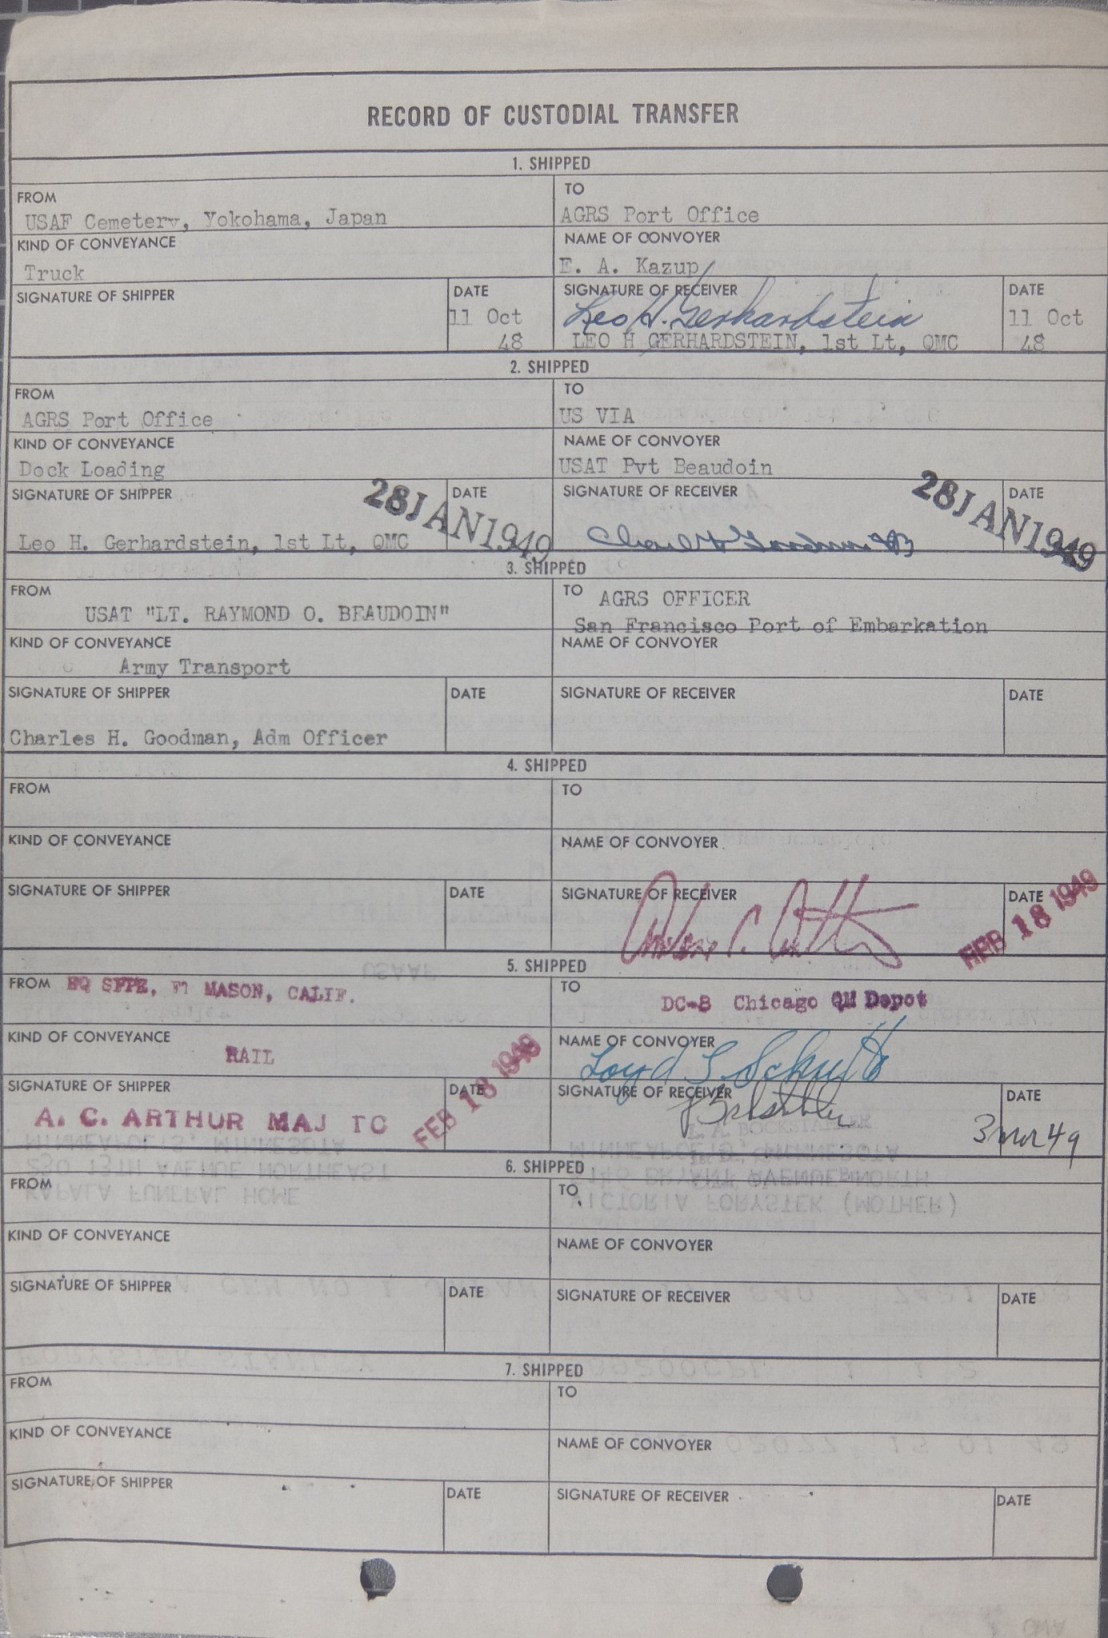 RECORD OF CUSTODIAL TRANSFER
1. SHIPPED
FROM
USAF Cemetery, Yokohama, Japan
TO
AGRS Port Office
KIND OF CONVEYANCE
Truck
NAME OF CONVOYER
E. A. Kazup
SIGNATURE OF SHIPPER
DATE
11 Oct
48
SIGNATURE OF RECEIVER
Leo H. Gerhardstein
LEO H GERHARDSTEIN, 1st Lt, QMC
DATE
11 Oct
48
2. SHIPPED
FROM
AGRS Port Office
TO
US VIA
KIND OF CONVEYANCE
Dock Loading
NAME OF CONVOYER
USAT Pvt Beaudoin
SIGNATURE OF SHIPPER
Leo H. Gerhardstein, 1st Lt, QMC
DATE
28 JAN 1949
SIGNATURE OF RECEIVER
DATE
28 JAN 1949
3. SHIPPED
FROM
USAT "LT. RAYMOND O. BEAUDOIN"
TO
AGRS OFFICER
San Francisco Port of Embarkation
KIND OF CONVEYANCE
Army Transport
NAME OF CONVOYER
SIGNATURE OF SHIPPER
Charles H. Goodman, Adm Officer
DATE
SIGNATURE OF RECEIVER
DATE
4. SHIPPED
FROM
TO
KIND OF CONVEYANCE
NAME OF CONVOYER
SIGNATURE OF SHIPPER
DATE
SIGNATURE OF RECEIVER
DATE
FEB 18 1949
5. SHIPPED
FROM HQ SFPE, FT MASON, CALIF.
TO
DC-8 Chicago QM Depot
KIND OF CONVEYANCE
RAIL
NAME OF CONVOYER
Loyd L Schultz
SIGNATURE OF SHIPPER
A. C. ARTHUR MAJ TC
DATE
FEB 18 1949
SIGNATURE OF RECEIVER
DATE
3 Mar 49
6. SHIPPED
FROM
TO
KIND OF CONVEYANCE
NAME OF CONVOYER
SIGNATURE OF SHIPPER
DATE
SIGNATURE OF RECEIVER
DATE
7. SHIPPED
FROM
TO
KIND OF CONVEYANCE
NAME OF CONVOYER
SIGNATURE OF SHIPPER
DATE
SIGNATURE OF RECEIVER
DATE